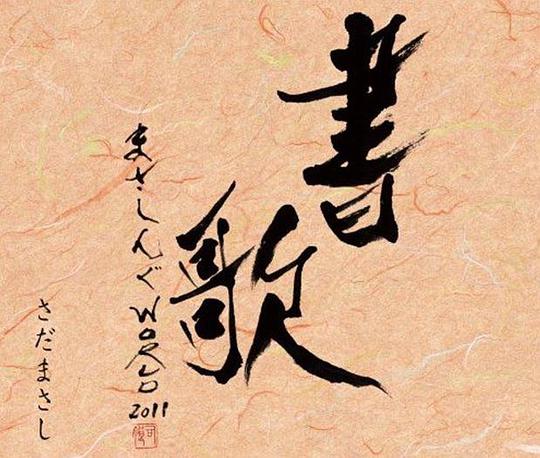 書歌
まさしんぐWORLD
2011
さだまさし